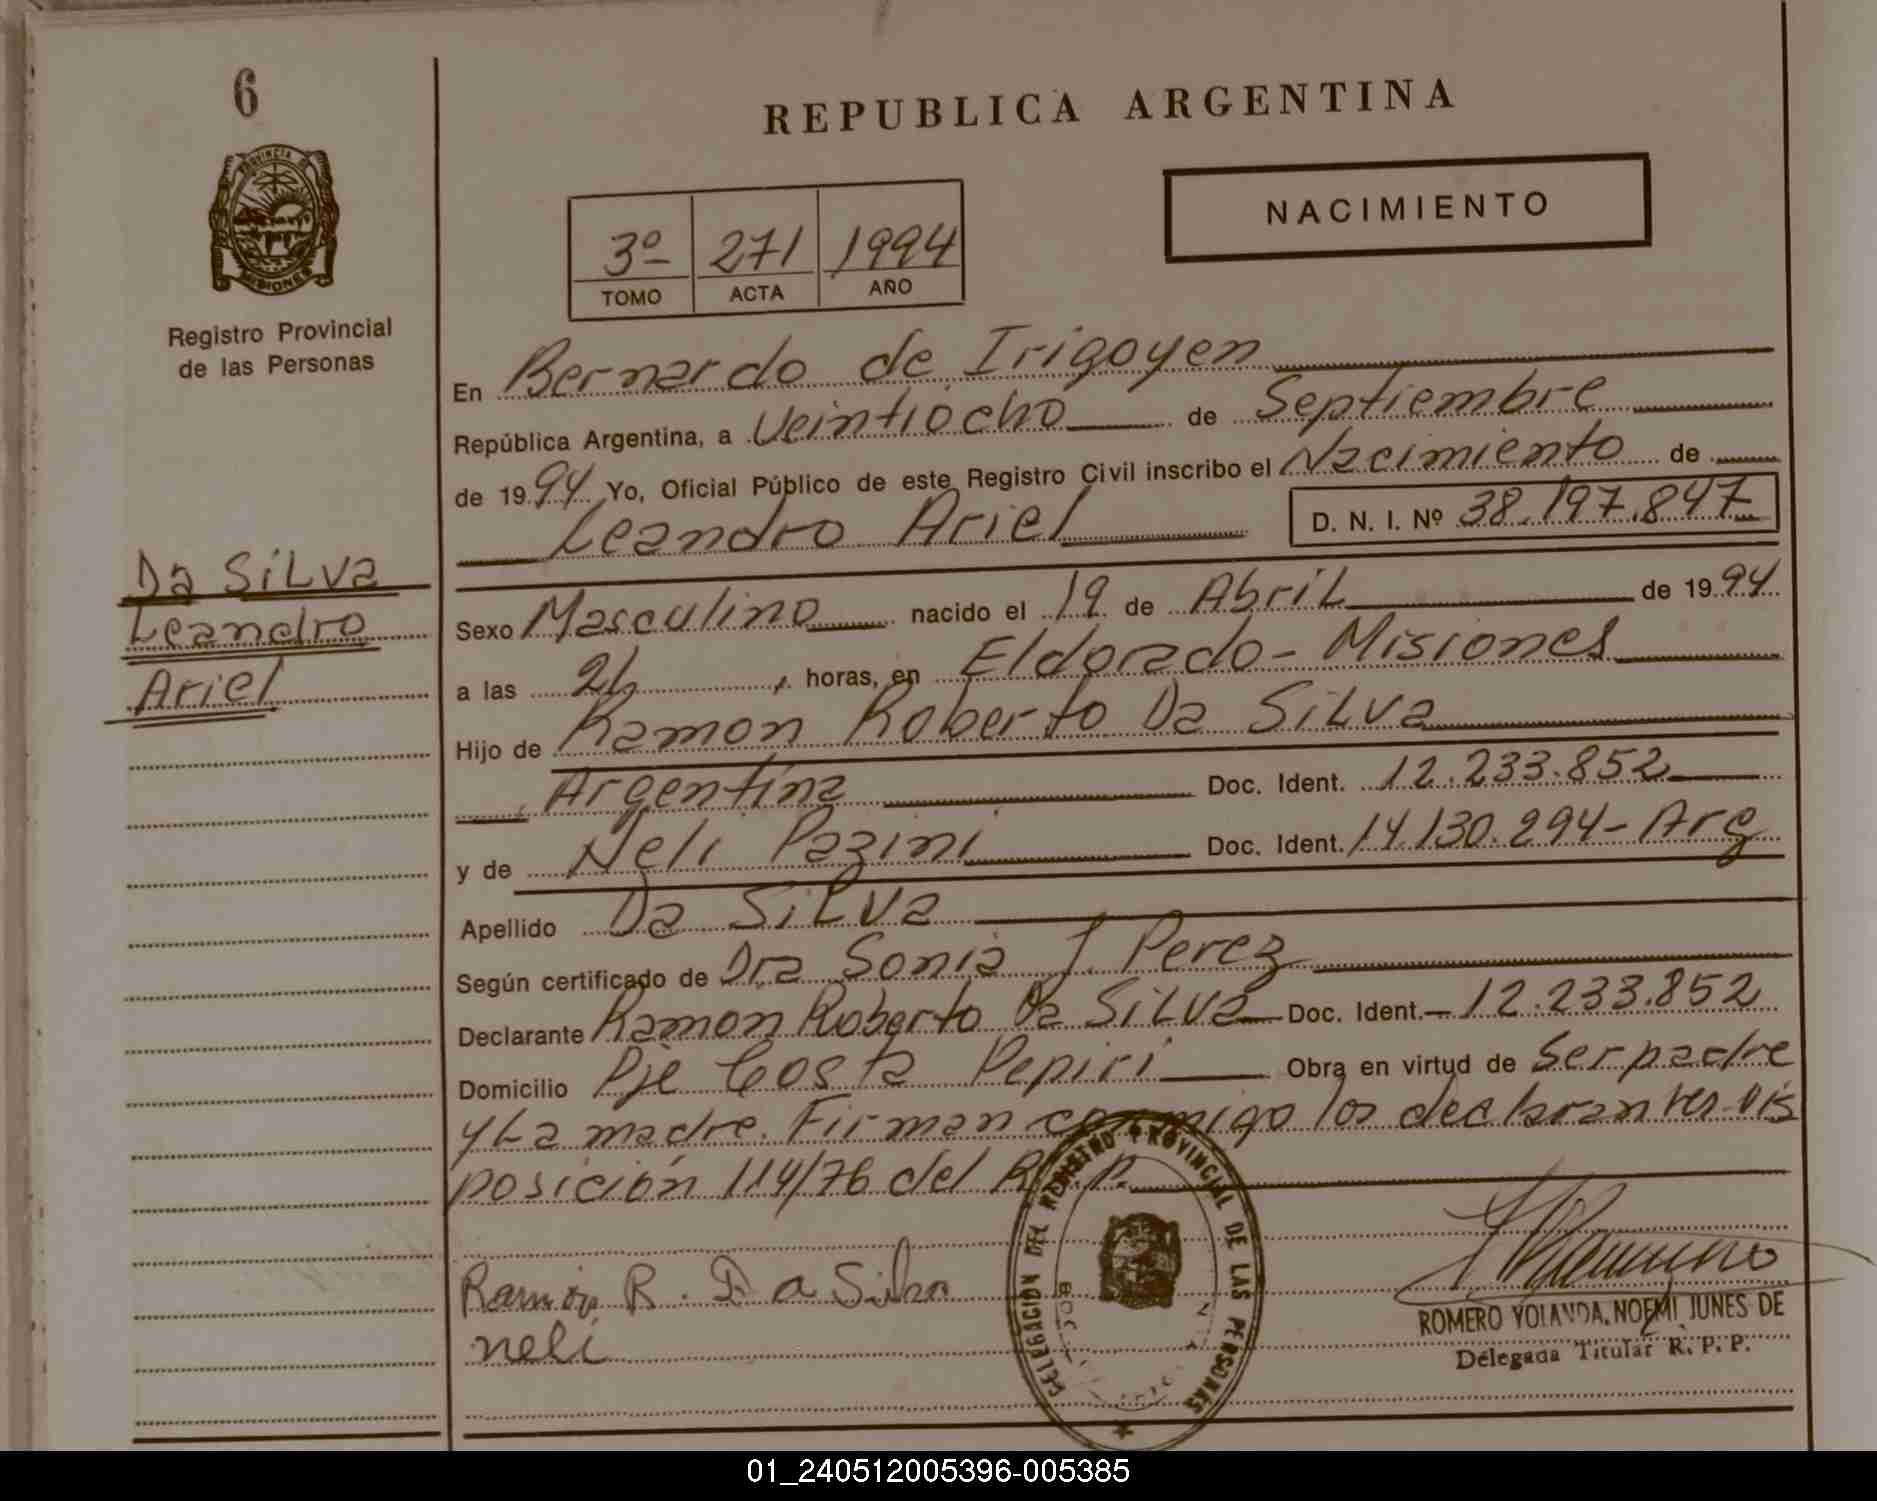 6
PROVINCIA DE
MISIONES
Registro Provincial
de las Personas
Da Silva
Leandro
Ariel
REPUBLICA ARGENTINA
NACIMIENTO
3º 271 1994
TOMO ACTA AÑO
En Bernardo de Irigoyen
República Argentina, a Veintiocho de Septiembre
de 1994 Yo, Oficial Público de este Registro Civil inscribo el Nacimiento de
Leandro Ariel D. N. I. Nº 38.197.847
Sexo Masculino nacido el 19 de Abril de 1994
a las horas, en Eldorado - Misiones
Hijo de Ramon Roberto Da Silva
Argentina Doc. Ident. 12.233.852
y de Neli Pazini Doc. Ident. 14.130.294 - Arg
Apellido Da Silva
Según certificado de Dra Sonia J. Perez
Declarante Ramon Roberto Da Silva Doc. Ident. 12.233.852
Domicilio Pje Costa Pepiri Obra en virtud de Ser padre
y La madre. Firman conmigo los declarantes Dis
posición 114/76 del R. P.
DELEGACION DEL REGISTRO PROVINCIAL DE LAS PERSONAS
Ramon R. Da Silva
neli
ROMERO YOLANDA NOEMI JUNES DE
Delegada Titular R. P. P.
01_240512005396-005385